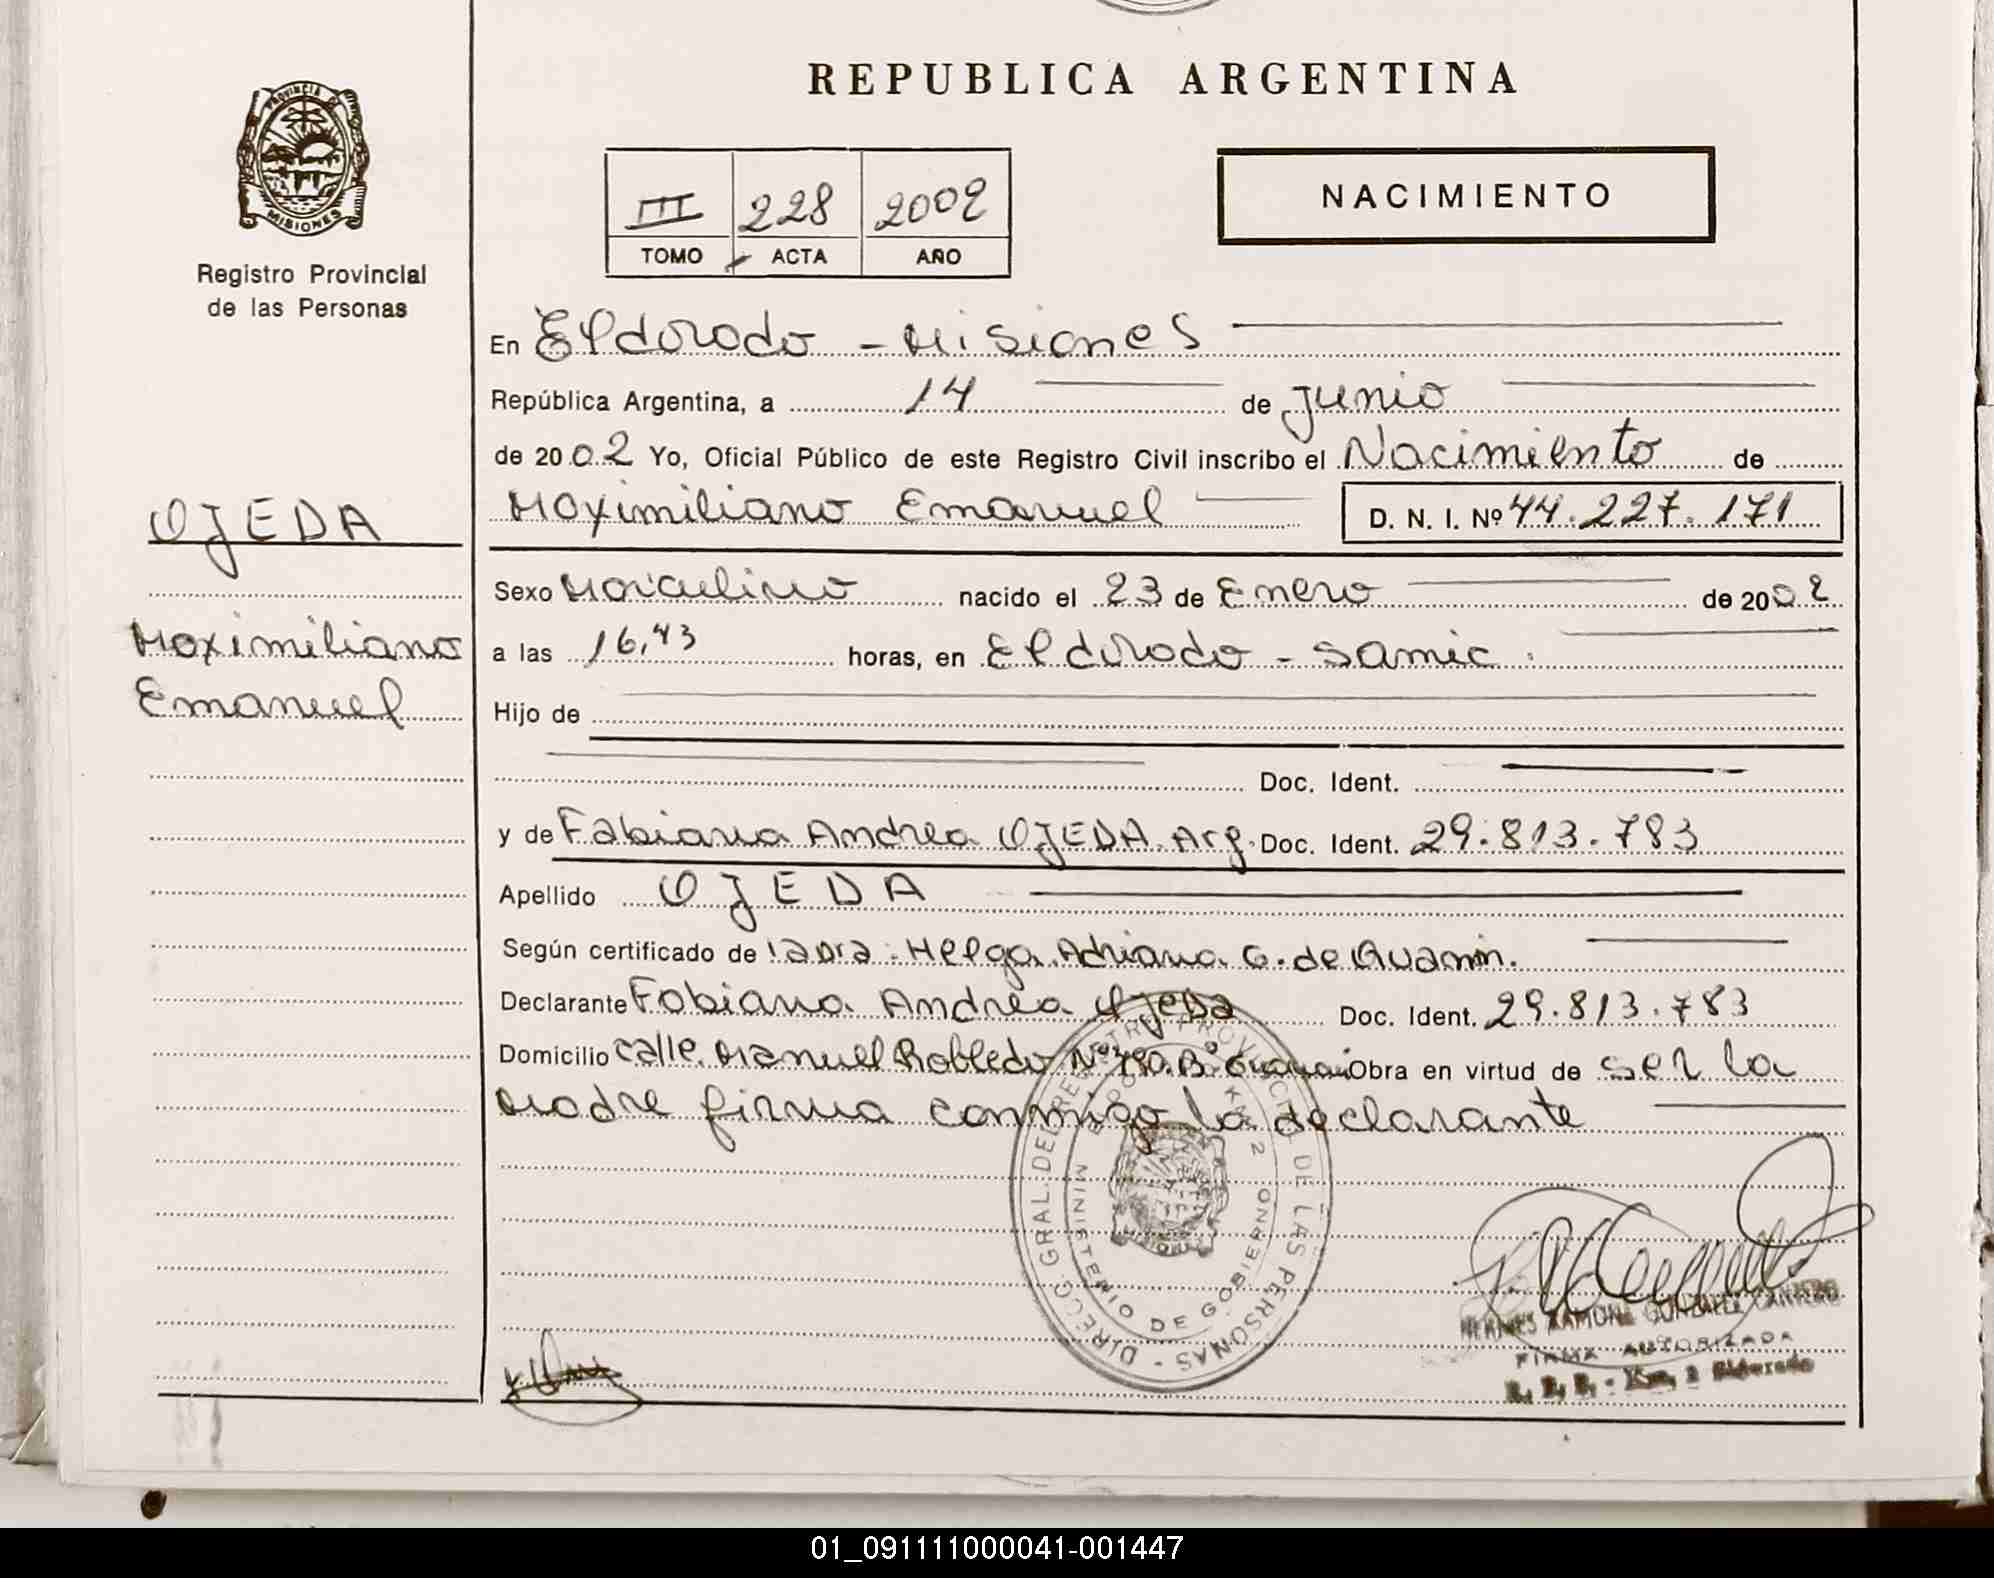 REPUBLICA ARGENTINA
PROVINCIA DE
MISIONES
Registro Provincial
de las Personas
III 228 2002
TOMO ACTA AÑO
NACIMIENTO
En Eldorado - Misiones
República Argentina, a 14 de Junio
de 2002 Yo, Oficial Público de este Registro Civil inscribo el Nacimiento de
Maximiliano Emanuel D. N. I. Nº 44.227.171
OJEDA
Maximiliano
Emanuel
Sexo Masculino nacido el 23 de Enero de 2002
a las 16,43 horas, en Eldorado - Samic.
Hijo de
Doc. Ident.
y de Fabiana Andrea OJEDA. Arg. Doc. Ident. 29.813.783
Apellido OJEDA
Según certificado de la Dra. Helga Adriana G. de
Declarante Fabiana Andrea Ojeda Doc. Ident. 29.813.783
Domicilio calle Manuel Robledo Nº 790. Bº Obra en virtud de ser la
Madre firma conmigo la declarante
DIRECC. GRAL. DEL REGISTRO PROVINCIAL DE LAS PERSONAS -
MINISTERIO DE GOBIERNO
ELDORADO KM. 2
HERMES RAMONA GONZALEZ
FIRMA AUTORIZADA
Km. 2 Eldorado
01_091111000041-001447